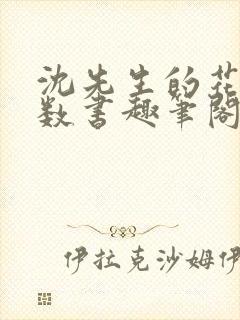 沈先生的花
数书趣笔阁
伊拉克沙姆伊